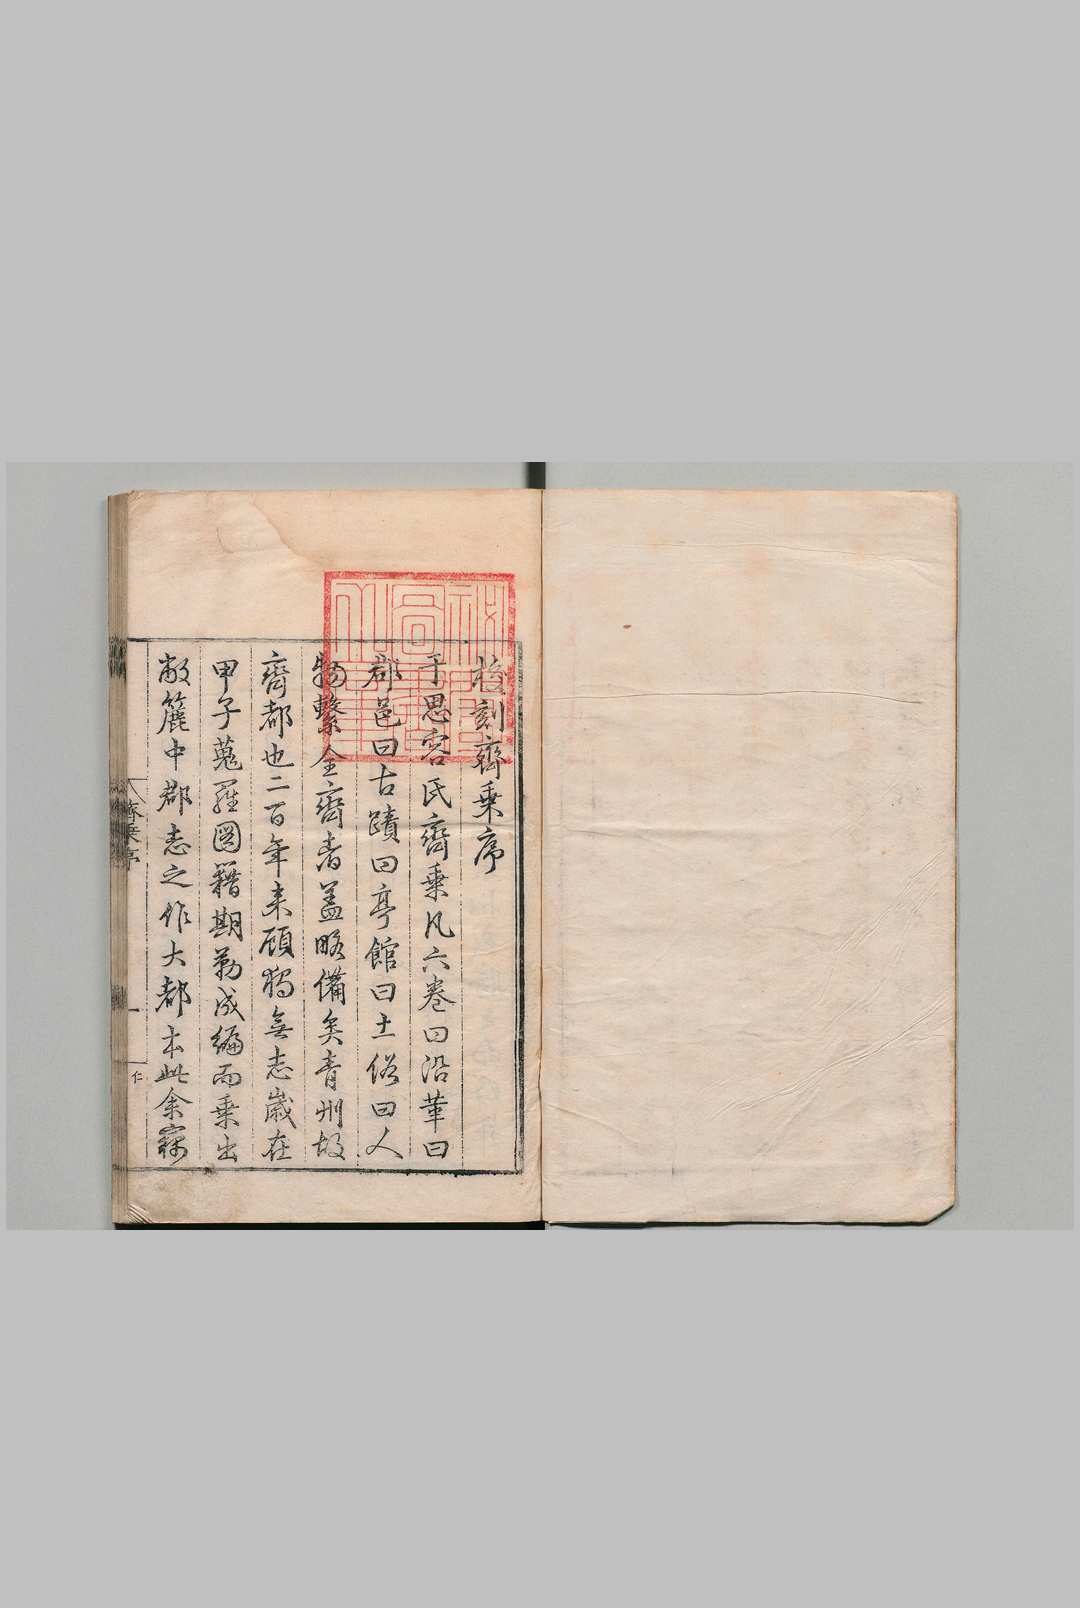 校刻齊乗序
于思容氏齊乗凡六卷曰沿革曰
郡邑曰古蹟曰亭館曰土俗曰人
物繫全齊者盖略備矣青州故
齊都也二百年来顧獨無志嵗在
甲子蒐羅圖籍期勒成編而乗出
敝簏中郡志之作大都本此余竊
齊乗序
一
仁